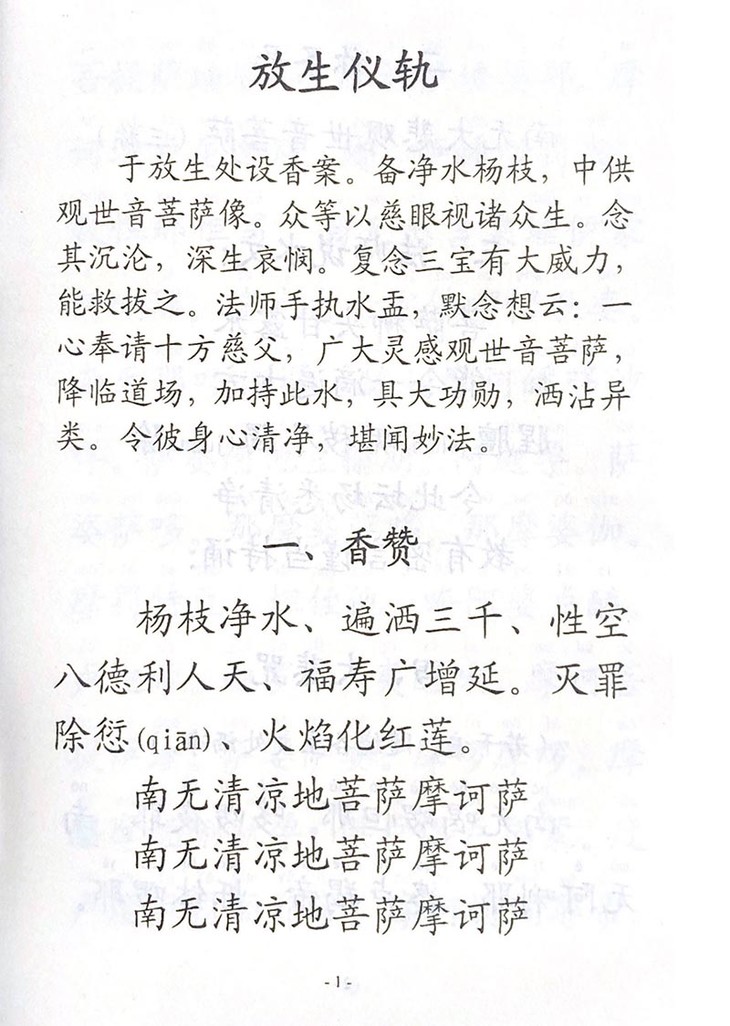 放生仪轨
于放生处设香案。备净水杨枝，中供
观世音菩萨像。众等以慈眼视诸众生。念
其沉沦，深生哀悯。复念三宝有大威力，
能救拔之。法师手执水盂，默念想云：一
心奉请十方慈父，广大灵感观世音菩萨，
降临道场，加持此水，具大功勋，洒沾异
类。令彼身心清净，堪闻妙法。
一、香赞
杨枝净水、遍洒三千、性空
八德利人天、福寿广增延。灭罪
除愆(qiān)、火焰化红莲。
南无清凉地菩萨摩诃萨
南无清凉地菩萨摩诃萨
南无清凉地菩萨摩诃萨
-1-